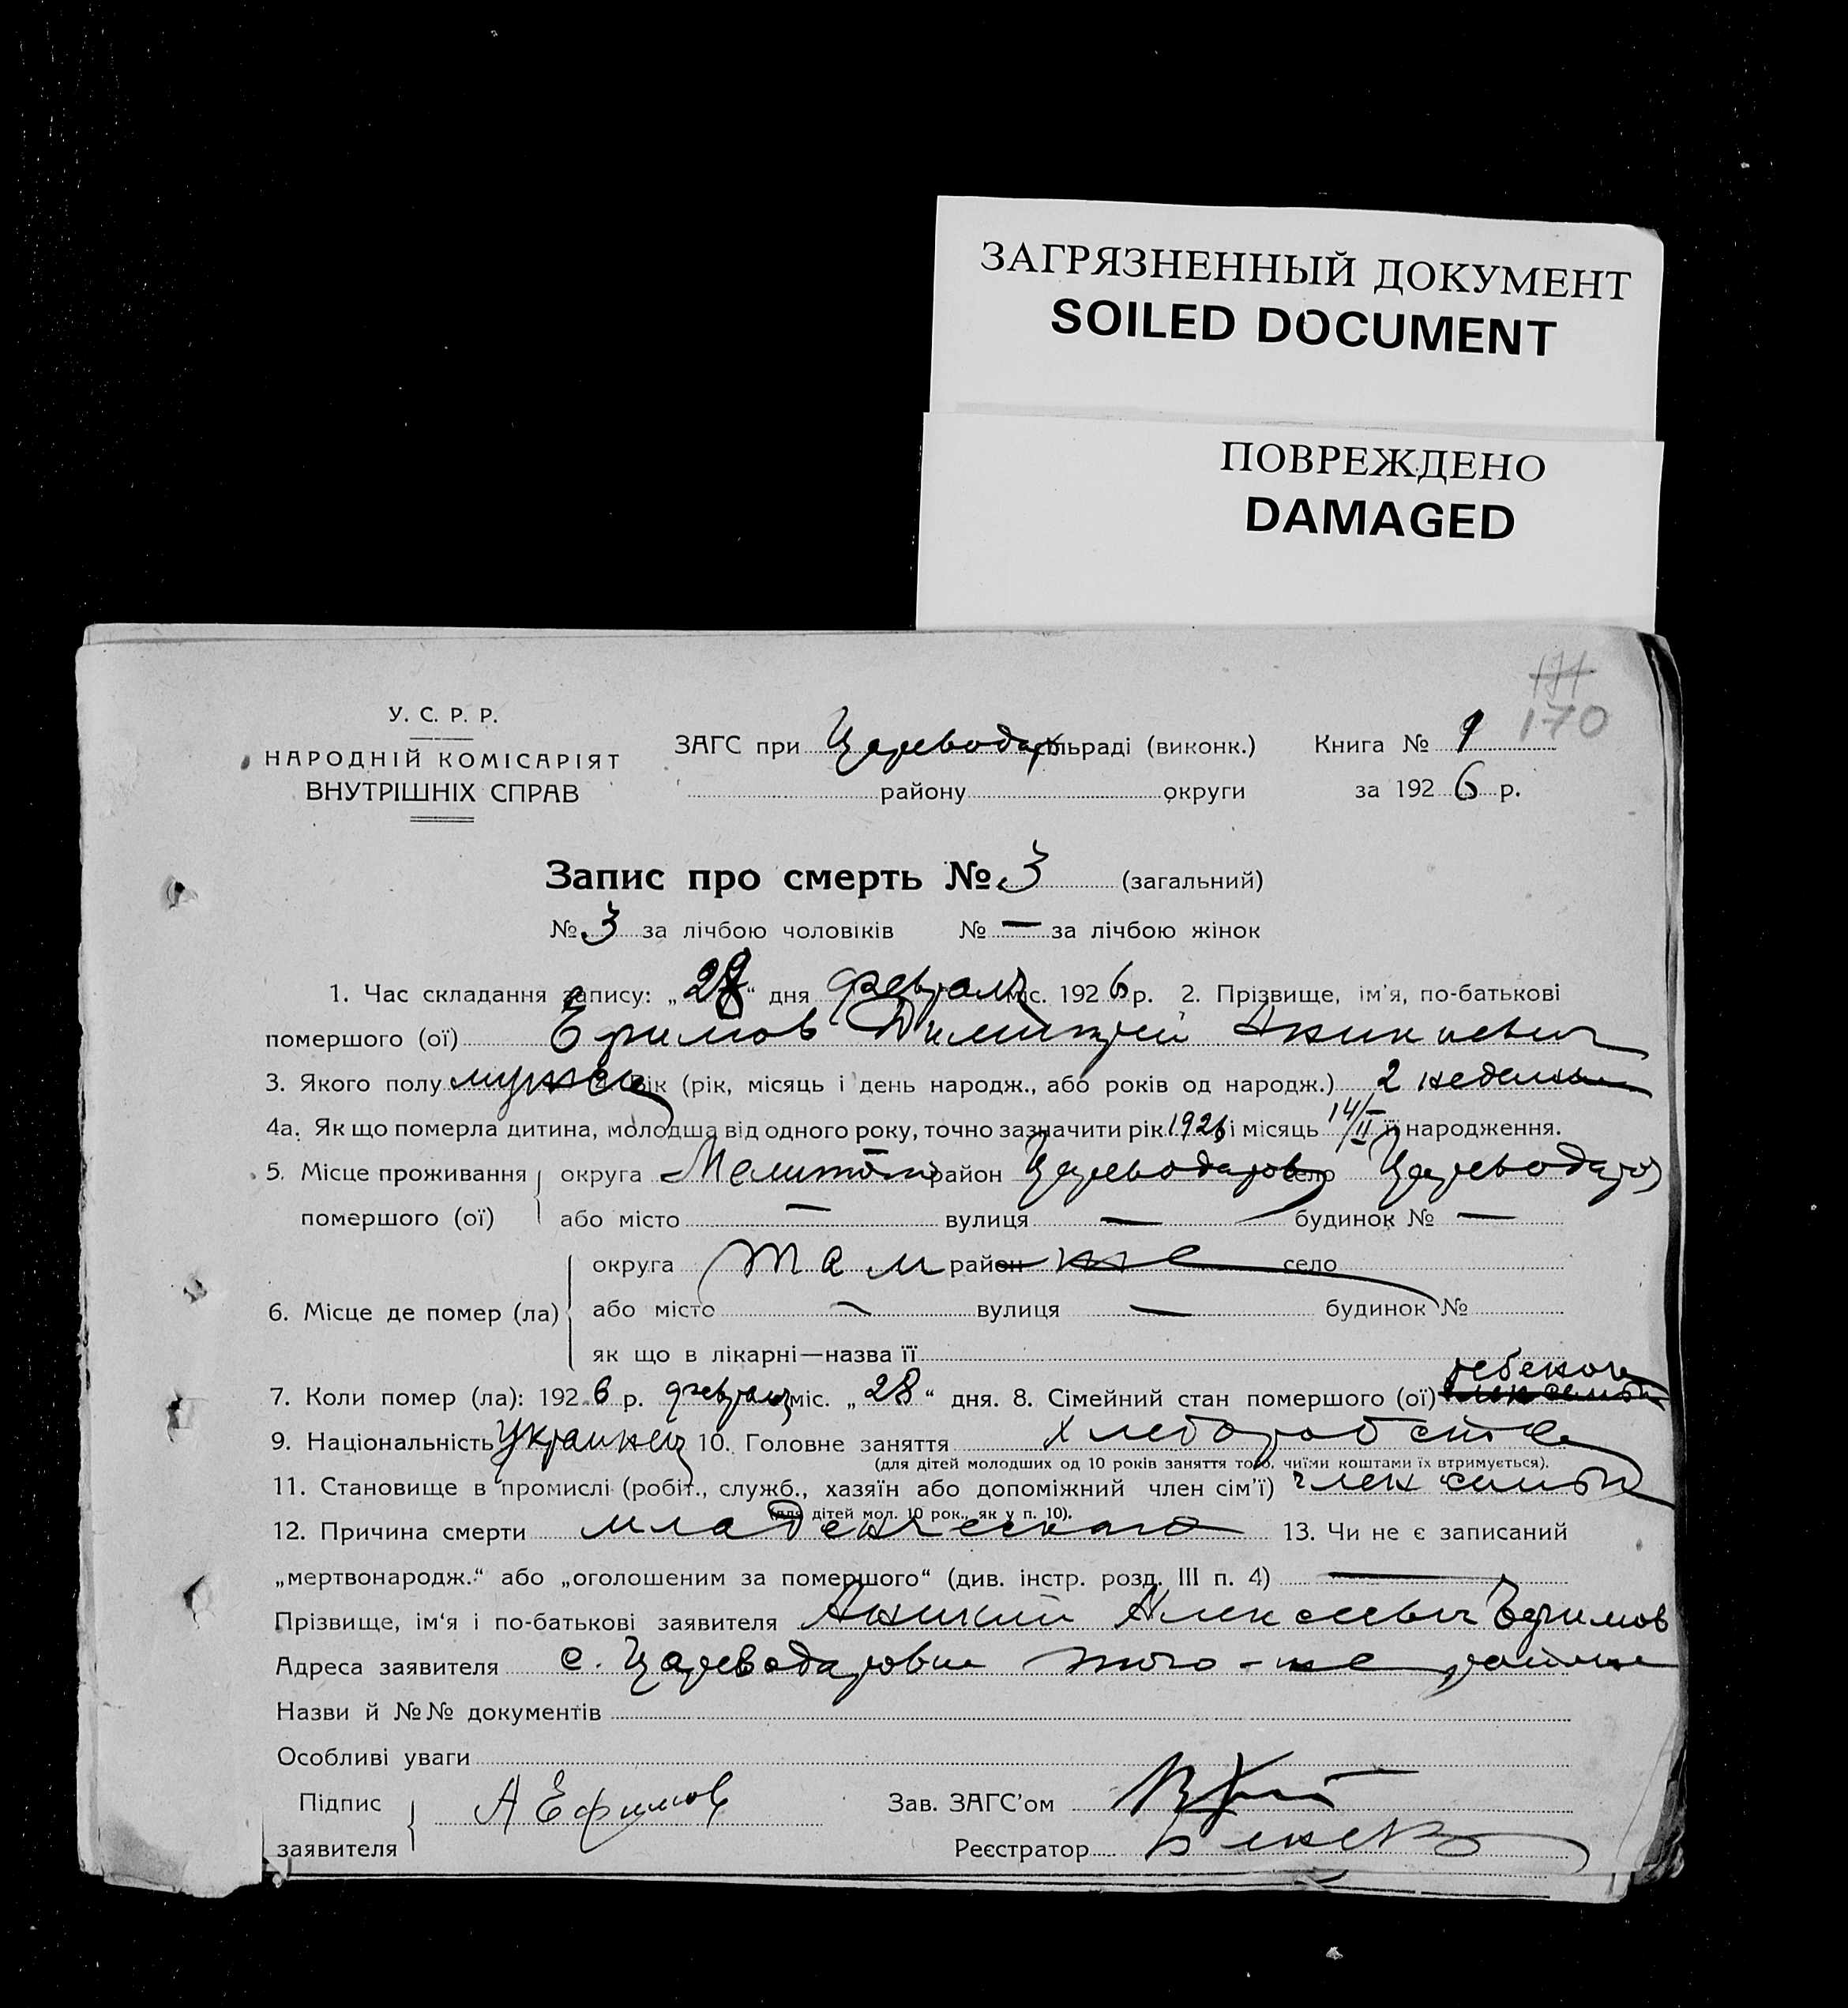 ЗАГРЯЗНЕННЫЙ ДОКУМЕНТ
SOILED DOCUMENT
ПОВРЕЖДЕНО
DAMAGED
171
170
У. С. Р. Р.
НАРОДНІЙ КОМІСАРІЯТ
ВНУТРІШНІХ СПРАВ
ЗАГС при Цареводар сільраді (виконк.) Книга № 1
району округи за 1926 р.
Запис про смерть № 3 (загальний)
№ 3 за лічбою чоловіків № — за лічбою жінок
1. Час складання запису: „28“ дня февраля міс. 1926 р. 2. Прізвище, ім'я, по-батькові
помершого (ої) Ефимов Димитрий Аникиевич
3. Якого полу мужск 4. Вік (рік, місяць і день народж., або років од народж.) 2 недели
4а. Як що померла дитина, молодша від одного року, точно зазначити рік 1926 і місяць 14/II її народження.
5. Місце проживання округа Мелитоп район Цареводаров село Цареводаров
помершого (ої) або місто — вулиця — будинок № —
округа там район же село
6. Місце де помер (ла) або місто — вулиця — будинок №
як що в лікарні—назва її
ребенок
7. Коли помер (ла): 1926 р. февраля міс. „28“ дня. 8. Сімейний стан помершого (ої) член семьи
9. Національність Украинец 10. Головне заняття хлеборобство
(для дітей молодших од 10 років заняття того, чиїми коштами їх втримується).
11. Становище в промислі (робіт., служб., хазяїн або допоміжний член сім'ї) член семьи
(для дітей мол. 10 рок., як у п. 10).
12. Причина смерти младенческая 13. Чи не є записаний
„мертвонародж.“ або „оголошеним за помершого“ (див. інстр. розд. III п. 4) —
Прізвище, ім'я і по-батькові заявителя Аникий Алексеевич Ефимов
Адреса заявителя с. Цареводаровка того-же района
Назви й №№ документів
Особливі уваги
Підпис заявителя А Ефимов Зав. ЗАГС'ом
Реєстратор